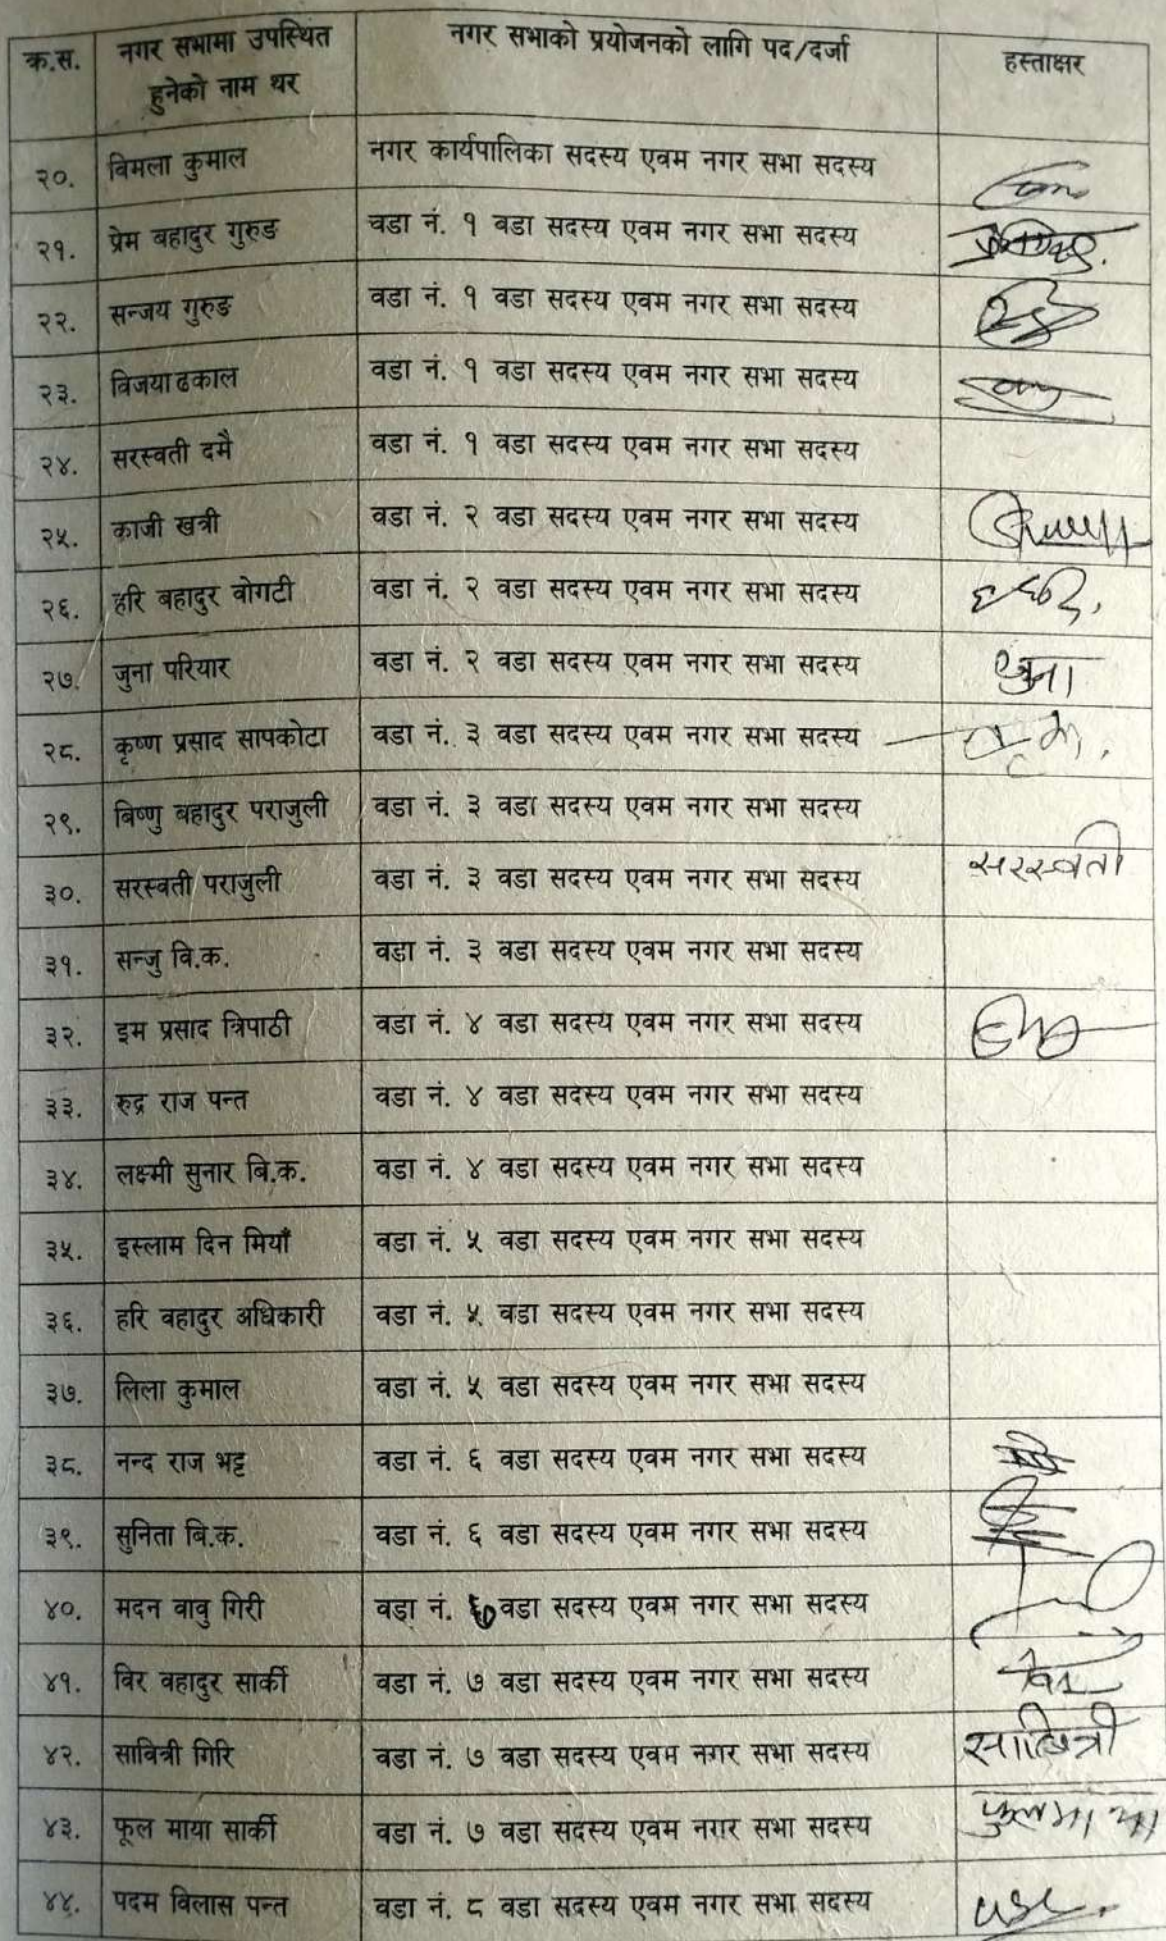 क्र.स. नगर सभामा उपस्थित हुनेको नाम थर नगर सभाको प्रयोजनको लागि पद/दर्जा हस्ताक्षर
२०. विमला कुमाल नगर कार्यपालिका सदस्य एवम नगर सभा सदस्य
२१. प्रेम बहादुर गुरुङ वडा नं. १ वडा सदस्य एवम नगर सभा सदस्य
२२. सन्जय गुरुङ वडा नं. १ वडा सदस्य एवम नगर सभा सदस्य
२३. विजया ढकाल वडा नं. १ वडा सदस्य एवम नगर सभा सदस्य
२४. सरस्वती दमै वडा नं. १ वडा सदस्य एवम नगर सभा सदस्य
२५. काजी खत्री वडा नं. २ वडा सदस्य एवम नगर सभा सदस्य
२६. हरि बहादुर वोगटी वडा नं. २ वडा सदस्य एवम नगर सभा सदस्य
२७. जुना परियार वडा नं. २ वडा सदस्य एवम नगर सभा सदस्य जुना
२८. कृष्ण प्रसाद सापकोटा वडा नं. ३ वडा सदस्य एवम नगर सभा सदस्य
२९. बिष्णु बहादुर पराजुली वडा नं. ३ वडा सदस्य एवम नगर सभा सदस्य
३०. सरस्वती पराजुली वडा नं. ३ वडा सदस्य एवम नगर सभा सदस्य सरस्वती
३१. सन्जु वि.क. वडा नं. ३ वडा सदस्य एवम नगर सभा सदस्य
३२. इम प्रसाद त्रिपाठी वडा नं. ४ वडा सदस्य एवम नगर सभा सदस्य
३३. रुद्र राज पन्त वडा नं. ४ वडा सदस्य एवम नगर सभा सदस्य
३४. लक्ष्मी सुनार बि.क. वडा नं. ४ वडा सदस्य एवम नगर सभा सदस्य
३५. इस्लाम दिन मियाँ वडा नं. ५ वडा सदस्य एवम नगर सभा सदस्य
३६. हरि वहादुर अधिकारी वडा नं. ५ वडा सदस्य एवम नगर सभा सदस्य
३७. लिला कुमाल वडा नं. ५ वडा सदस्य एवम नगर सभा सदस्य
३८. नन्द राज भट्ट वडा नं. ६ वडा सदस्य एवम नगर सभा सदस्य
३९. सुनिता बि.क. वडा नं. ६ वडा सदस्य एवम नगर सभा सदस्य
४०. मदन वावु गिरी वडा नं. ७ वडा सदस्य एवम नगर सभा सदस्य
४१. विर वहादुर सार्की वडा नं. ७ वडा सदस्य एवम नगर सभा सदस्य
४२. सावित्री गिरि वडा नं. ७ वडा सदस्य एवम नगर सभा सदस्य सावित्री
४३. फूल माया सार्की वडा नं. ७ वडा सदस्य एवम नगर सभा सदस्य फुलमाया
४४. पदम विलास पन्त वडा नं. ८ वडा सदस्य एवम नगर सभा सदस्य